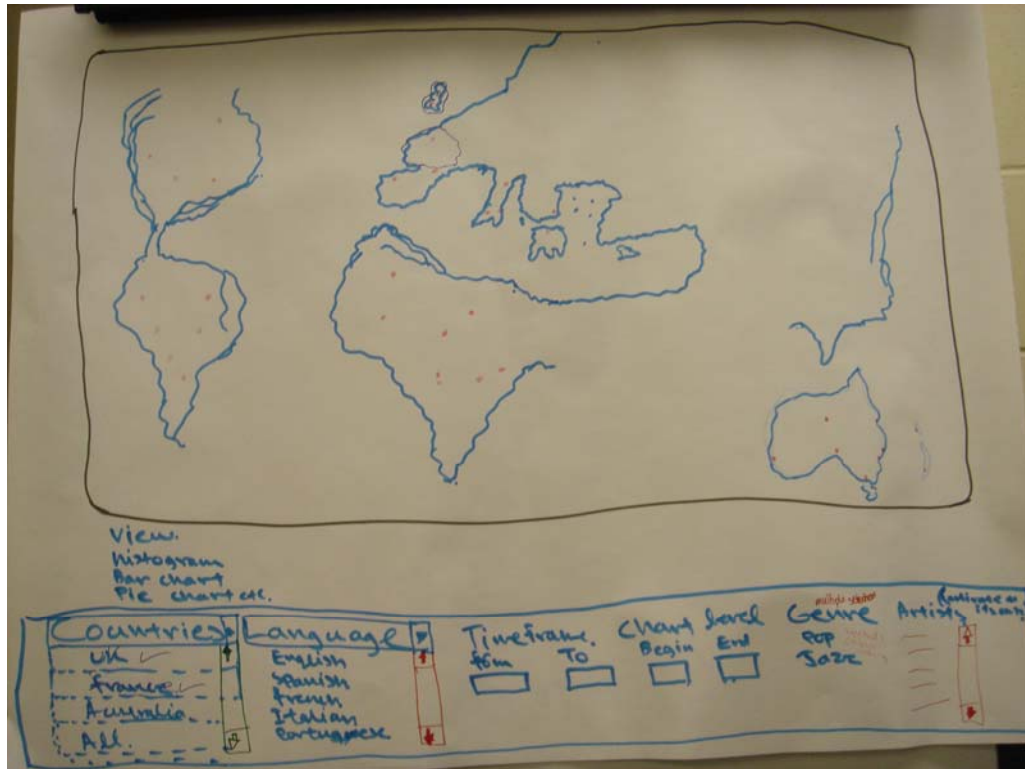 View.
Histogram
Bar chart
Pie chart etc.
Countries
UK
France
Australia
All.
Language
English
Spanish
French
Italian
Portuguese
Timeframe.
To
Chart level
Begin End
Genre
POP
Jazz
Artists